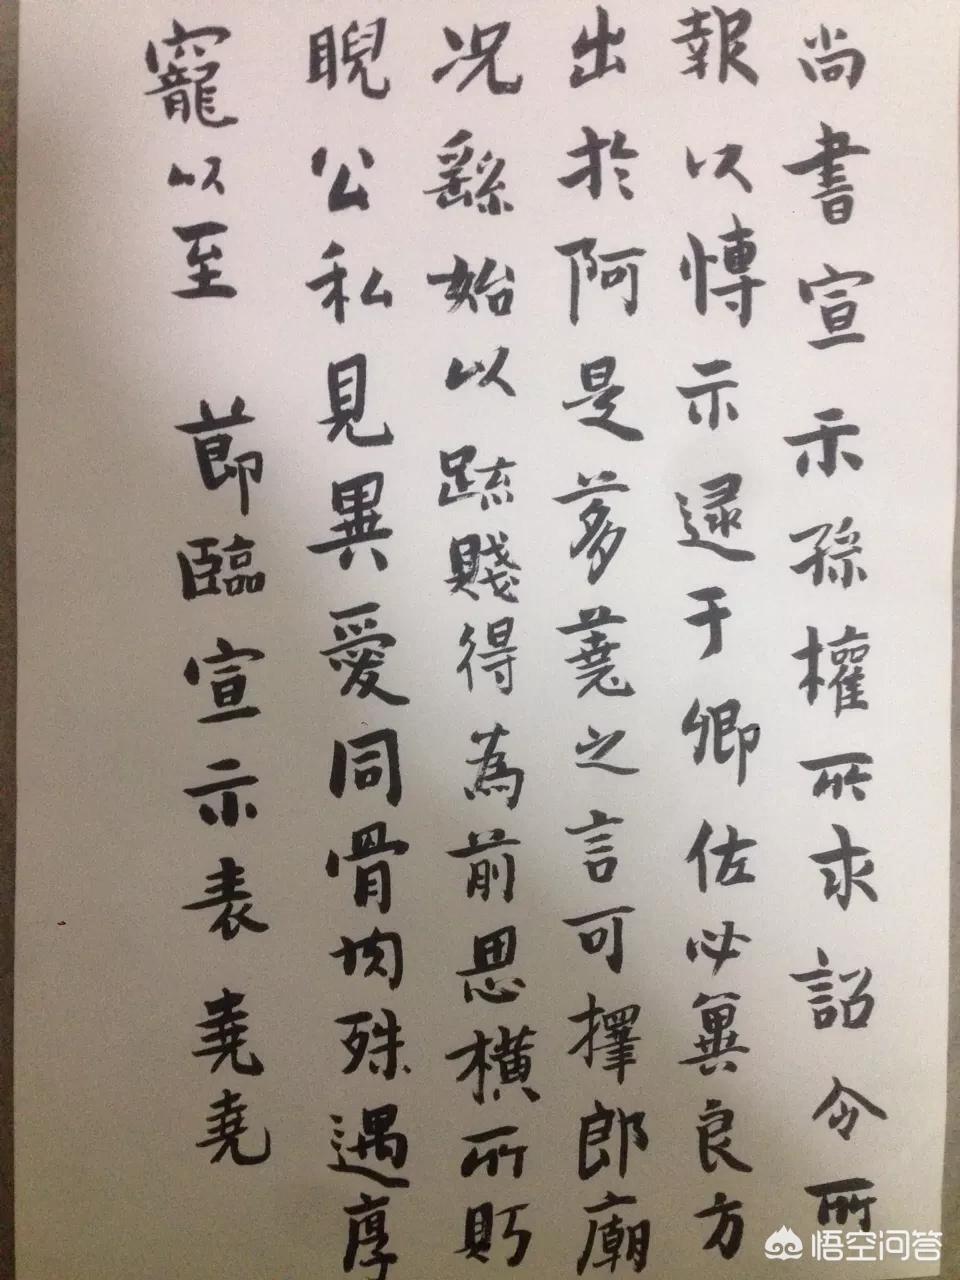 尚書宣示孫權所求詔令所
報以愽示逯于卿佐必冀良方
出於阿是芻蕘之言可擇郎廟
况繇始以疏賤得為前恩橫所盱
睨公私見異愛同骨肉殊遇厚
寵以至 節臨宣示表堯堯
悟空问答